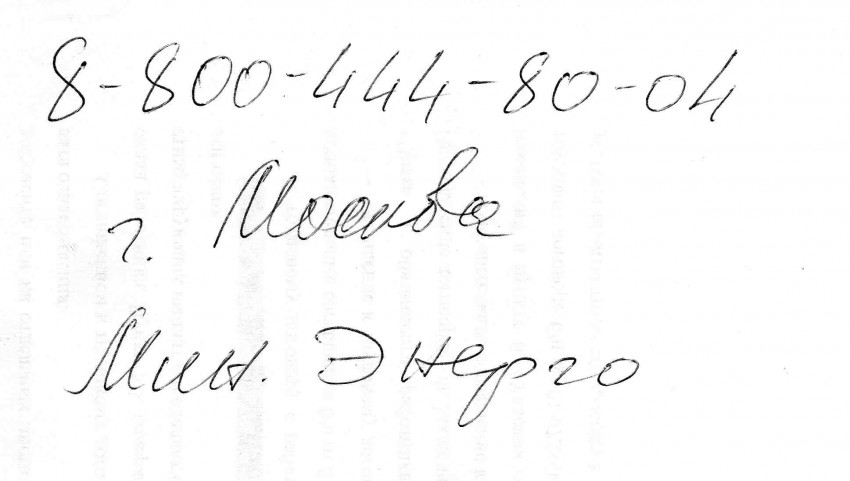 8-800-444-80-04
г. Москва
Мин. Энерго